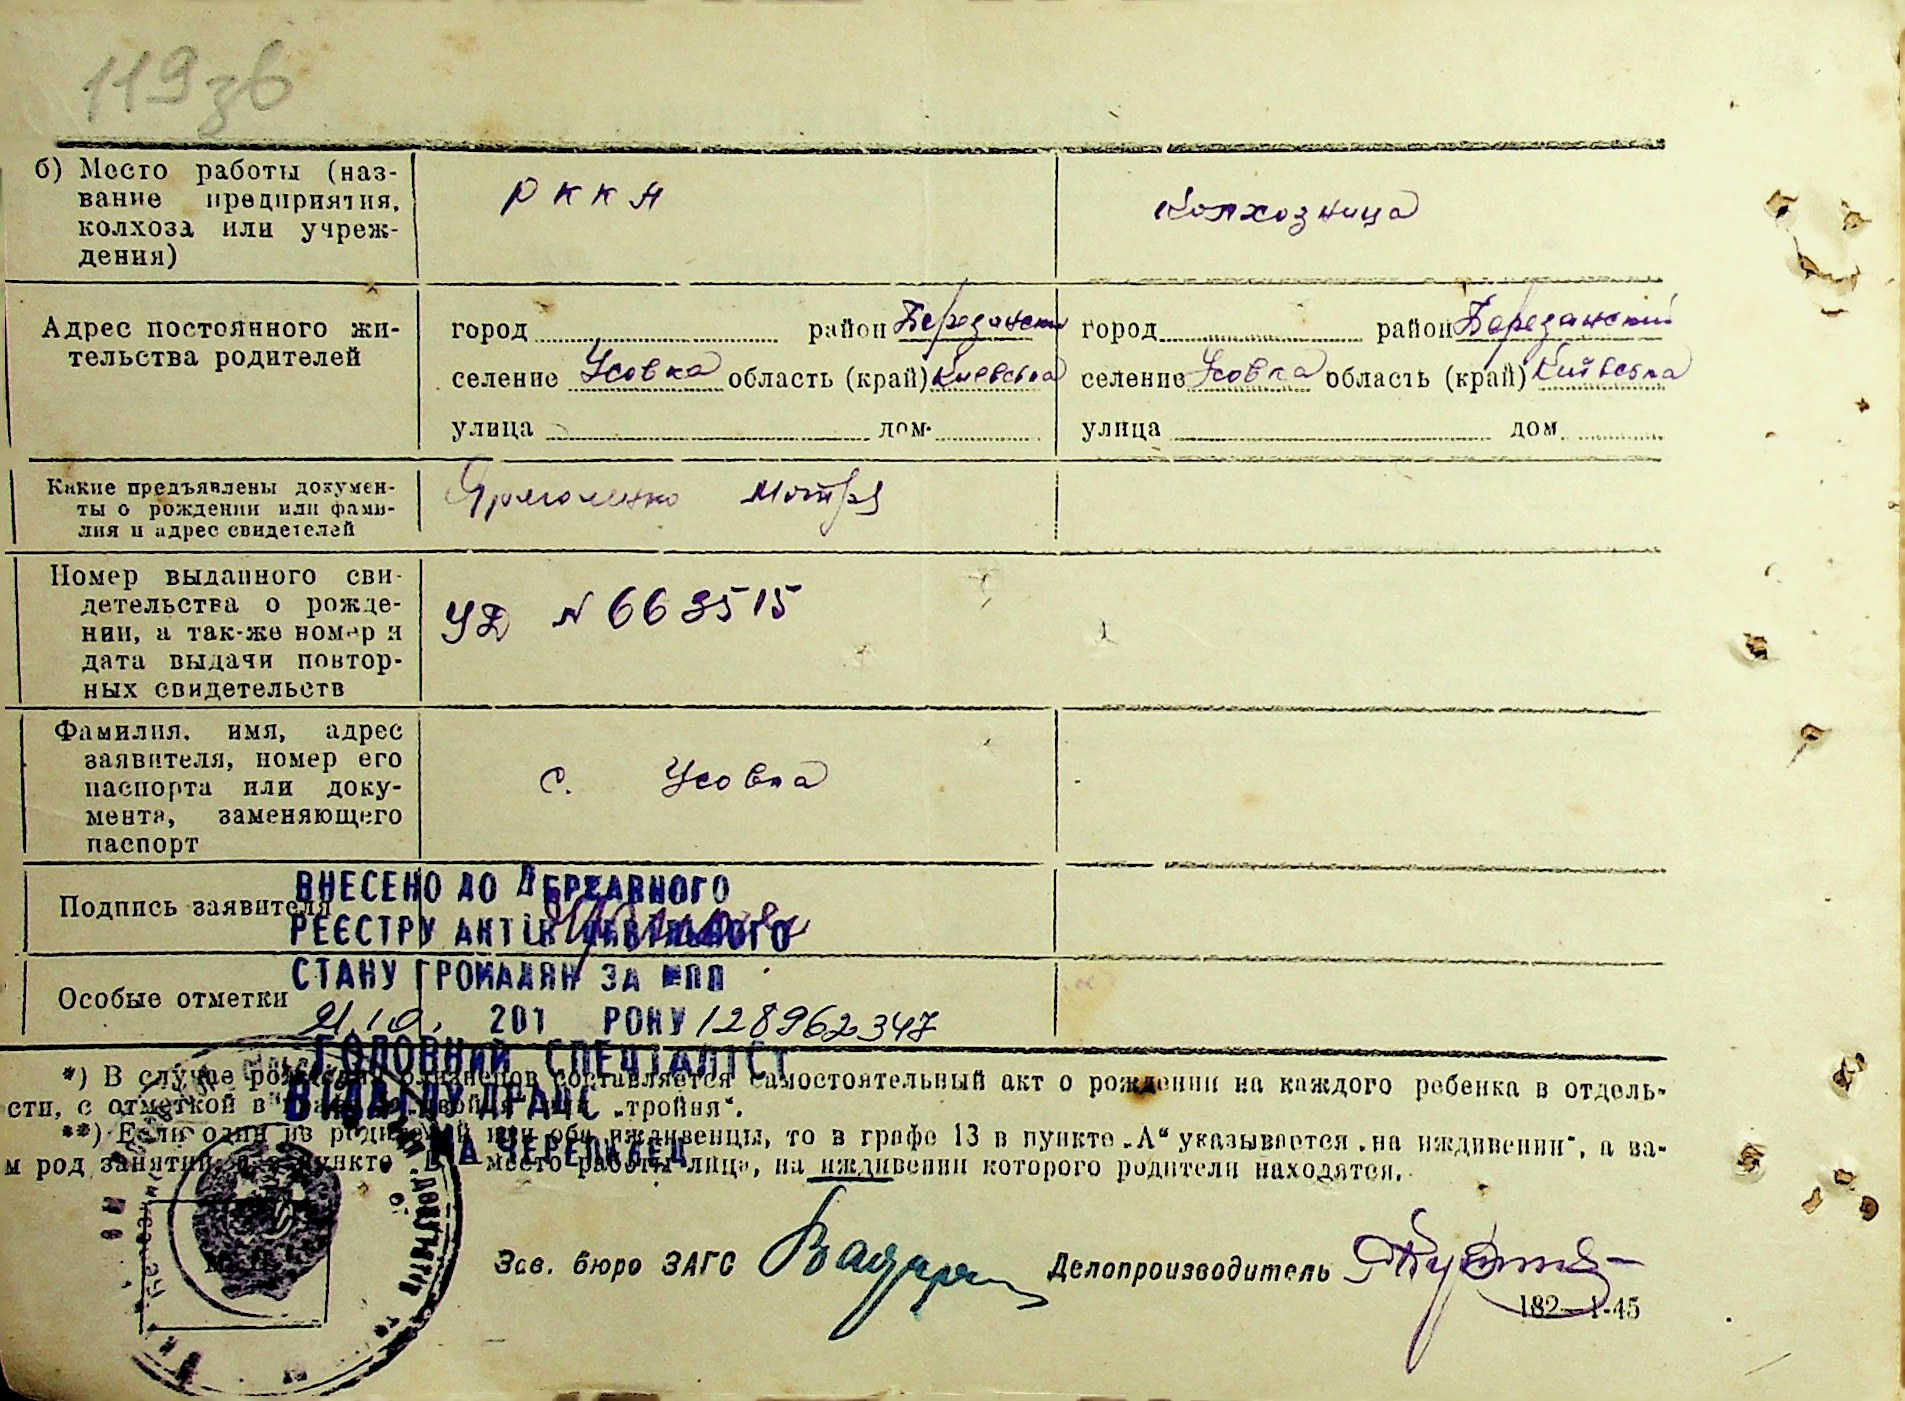 119зв
б) Место работы (наз-
вание предприятия,
колхоза или учреж-
дения)
РККА
колхозница
Адрес постоянного жи-
тельства родителей
город район Березански
селение Усовка область (край) Киевська
улица дом
город район Березанский
селение Усовка область (край) Київська
улица дом
Какие предъявлены докумен-
ты о рождении или фами-
лия и адрес свидетелей
Мотря
Номер выданного сви-
детельства о рожде-
нии, а так-же номер и
дата выдачи повтор-
ных свидетельств
УД N 663515
Фамилия, имя, адрес
заявителя, номер его
паспорта или доку-
мента, заменяющего
паспорт
с. Усовка
Подпись заявителя
ВНЕСЕНО ДО ДЕРЖАВНОГО
РЕЄСТРУ АКТІВ ЦИВІЛЬНОГО
СТАНУ ГРОМАДЯН ЗА №ПП
Особые отметки
21.10. 201 РОКУ 128962347
ГОЛОВНИЙ СПЕЦІАЛІСТ
ВІДДІЛУ ДРАЦС
*) В случае рождения близнецов составляется самостоятельный акт о рождении на каждого ребенка в отдель-
сти, с отметкой в „двойня" или „тройня".
**) Если один из родителей или оба иждивенцы, то в графе 13 в пункте „А" указывается „на иждивении", а ва-
м род занятий, а в пункте „Б" место работы лица, на иждивении которого родители находятся.
Зав. бюро ЗАГС
Делопроизводитель
182—1-45